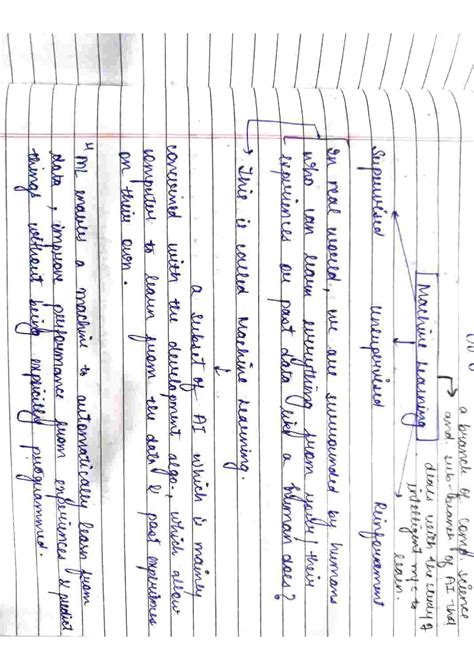 a branch of comp. science
and sub-branch of AI that
deals with the study of
intelligent m/c to
learn.
Machine Learning
Supervised Unsupervised Reinforcement
In real world, we are surrounded by humans
who can learn everything from their
experiences or past data like a human does?
→ This is called Machine Learning.
a subset of AI which is mainly
concerned with the development algo., which allow
computer to learn from the data & past experiences
on their own.
"ML enables a machine to automatically learn from
data, improve performance from experiences & predict
things without being explicitly programmed.